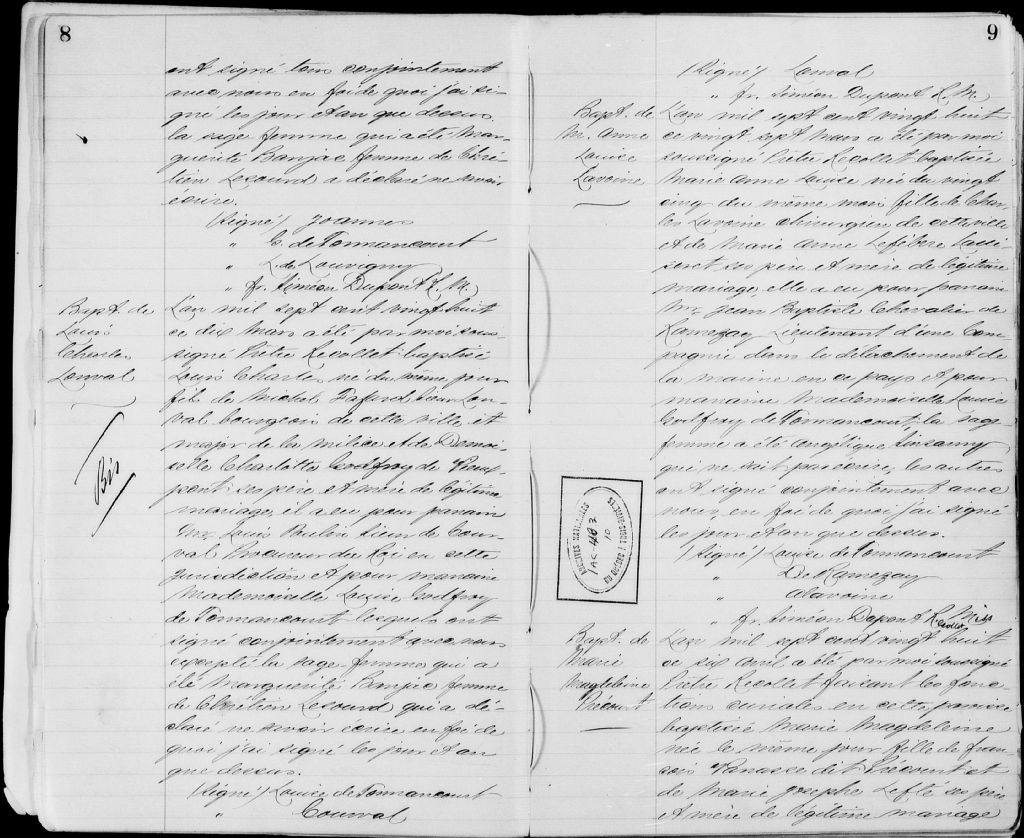 8
ont signé tous conjointement
avec nous en foi de quoi j'ai si-
gné les jour et an que dessus.
la sage femme qui a été Mar-
guerite Banjac femme de Chré-
tien Lecourd a déclaré ne savoir
écrire.
(Signé) Joannes
" G. de Tonnancourt
" L. de Louvigny
" fr. Siméon Dupont R. M.
Bapt. de
Louis
Charles
Lonval
Bis
L'an mil sept cent vingt huit
ce dix Mars a été par moi sous-
signé Prêtre Recollet baptisé
Louis Charles né du même jour
fils de Michel Lafond Sour Lon-
val bourgeois de cette ville et
major de la milice et de Demoi-
selle Charlotte Godfroy de
ses père et mère de légitime
mariage, il a eu pour parain
Mr. Louis Poulin Sieur de Cour-
val Procureur du Roi en cette
jurisdiction et pour maraine
Mademoiselle Louise Godfroy
de Tonnancourt lesquels ont
signé conjointement avec nous
excepté la sage-femme qui a
été Marguerite Banjac femme
de Chrétien Lecourd qui a dé-
claré ne savoir écrire en foi de
quoi j'ai signé les jour et an
que dessus.
(Signé) Louise de Tonnancourt
" Courval
9
(Signé) Lonval
" fr. Siméon Dupont R. M.
Bapt. de
M. Anne
Louise
Lavoine
L'an mil sept cent vingt huit
ce vingt sept Mars a été par moi
soussigné Prêtre Recollet baptisée
Marie Anne Louise née du vingt
cinq du même mois fille de Char-
les Lavoine chirurgien de cette ville
et de Marie Anne Lefébvre Lassi-
seret ses père et mère de légitime
mariage, elle a eu pour parain
Mr. Jean Baptiste Chevalier de
Ramezay Lieutenant d'une Com-
pagnie dans le détachement de
la marine en ce pays et pour
maraine Mademoiselle Louise
Godfroy de Tonnancourt; la sage
femme a été Angélique
qui ne sait pas écrire, les autres
ont signé conjointement avec
nous, en foi de quoi j'ai signé
les jour et an que dessus.
(Signé) Louise de Tonnancourt
" De Ramezay
" Alavoine
" fr. Siméon Dupont Recollet Miss
ARCHIVES NATIONALES
1 AC 483
10
DU QUEBEC A TROIS-RIVIERES
Bapt. de
Marie
Magdeleine
Précourt
L'an mil sept cent vingt huit
ce six avril a été par moi soussigné
Prêtre Recollet faisant les fonc-
tions curiales en cette paroisse
baptisée Marie Magdeleine
née le même jour fille de Fran-
çois Vanasse dit Précourt et
de Marie Josephe ses père
et mère de légitime mariage